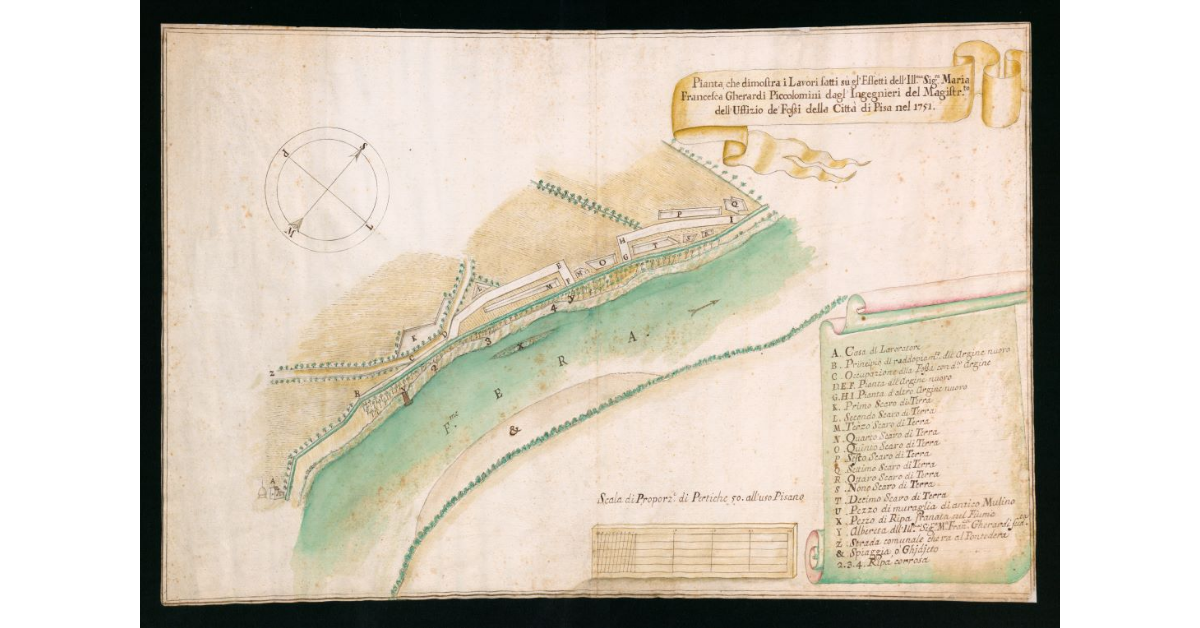 Pianta, che dimostra i Lavori fatti su gl'Effetti dell'Ill.ma Sig.ra Maria
Francesca Gherardi Piccolomini dagl'Ingegnieri del Magistr.to
dell'Uffizio de' Fossi della Città di Pisa nel 1751.
P S
M L
Q
P
I
H
T S R
G
O
N
F
E
M
L
4
K
D
3
X
C
2
Z
B
Y
A
F.me ERA.
&
Scala di Proporz.e di Pertiche 50. all'uso Pisano
A. Casa di Lavoratori
B. Principio di raddoppiam.to dell'Argine nuovo
C. Occupazione della Fossa con d.o Argine
D.E.F. Pianta dell'Argine nuovo
G.H.I. Pianta d'altro Argine nuovo
K. Primo Scavo di Terra
L. Secondo Scavo di Terra
M. Terzo Scavo di Terra
N. Quarto Scavo di Terra
O. Quinto Scavo di Terra
P. Sesto Scavo di Terra
Q. Settimo Scavo di Terra
R. Ottavo Scavo di Terra
S. Nono Scavo di Terra
T. Decimo Scavo di Terra
U. Pezzo di muraglia di antico Mulino
X. Pezzo di Ripa franata sul Fiume
Y. Albereta dell'Ill.ma Sig.ra M.a Fran.ca Gherardi
Z. Strada comunale che va al Pontedera
& Spiaggia, o Ghiajeto
2.3.4. Ripa corrosa